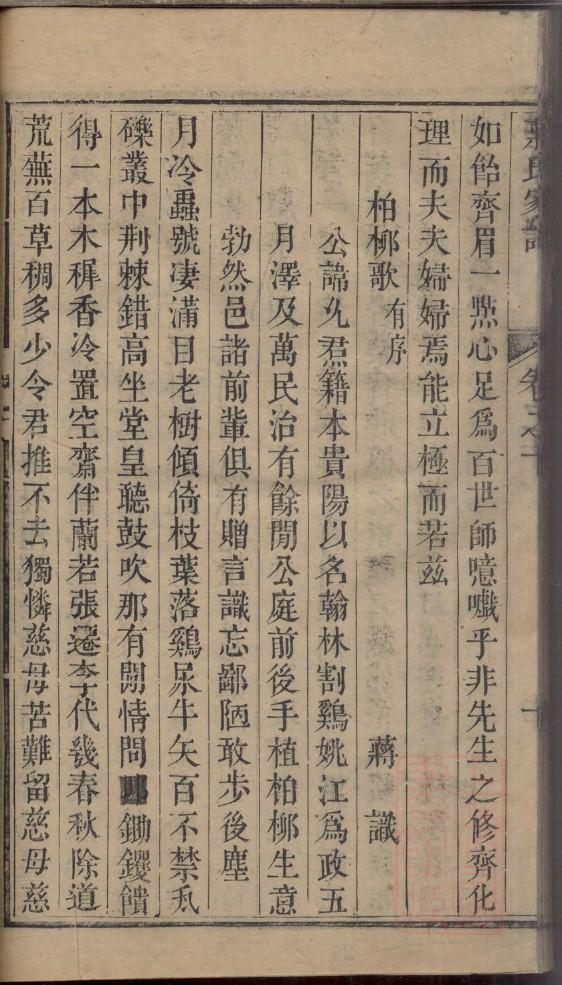 蔣氏家譜 卷之十
如飴齊眉一㸃心足爲百世師噫嚱乎非先生之修齊化
理而夫夫婦婦焉能立極而若玆
柏栁歌有序 蔣識
公諱允焄籍本貴陽以名翰林割鷄姚江爲政五
月澤及萬民治有餘閒公庭前後手植柏栁生意
勃然邑諸前輩俱有贈言識忘鄙陋敢步後塵
月冷蟲號凄滿目老樹傾倚枝葉落鷄尿牛矢百不禁瓦
礫叢中荆棘錯高坐堂皇聽鼓吹那有閒情問鋤钁饋
得一本木犀香冷置空齋伴蘭若張遷李代幾春秋除道
荒蕪百草稠多少令君推不去獨憐慈母苦難留慈母慈